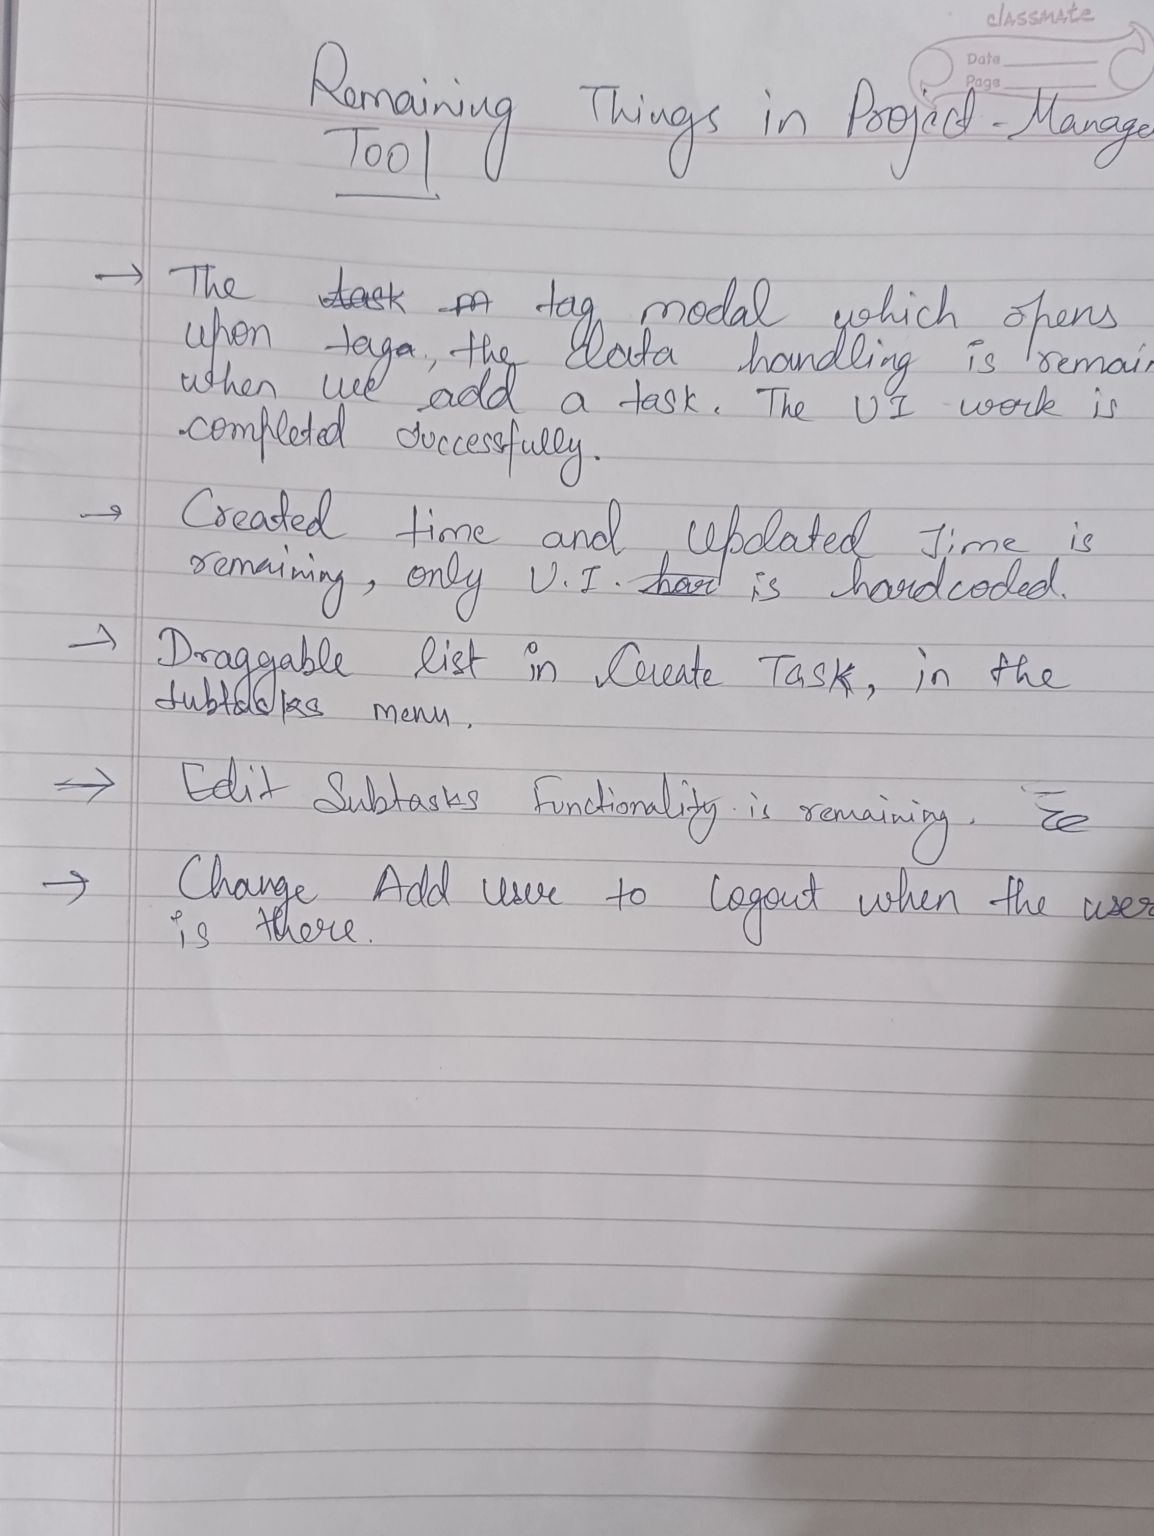 classmate
Date
Page
Remaining Things in Project-Manage
Tool
→ The task m tag modal which opens
upon taga, the data handling is remain
when we add a task. The UI work is
completed successfully.
→ Created time and Updated Time is
remaining, only U.I. hard is hardcoded.
→ Draggable list in Create Task, in the
subtasks menu.
→ Edit Subtasks Functionality is remaining.
→ Change Add user to logout when the user
is there.